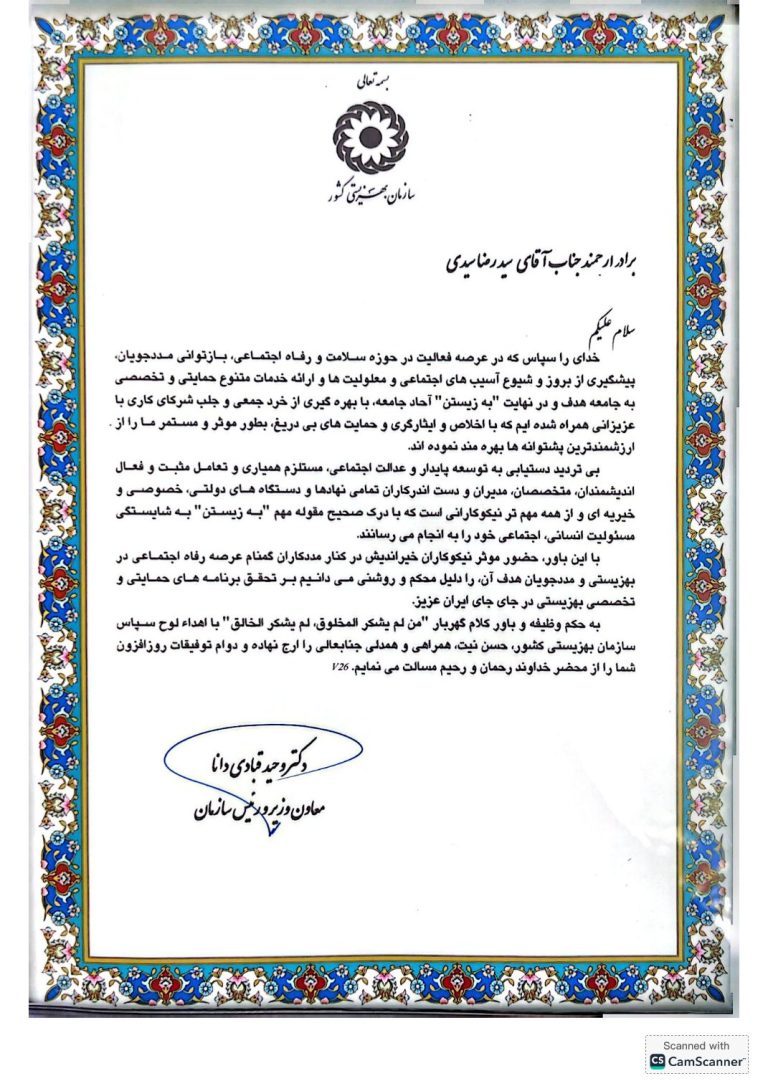 بسمه تعالی
سازمان بهزیستی کشور
برادر ارجمند جناب آقای سید رضا سیدی
سلام علیکم
خدای را سپاس که در عرصه فعالیت در حوزه سلامت و رفاه اجتماعی، بازتوانی مددجویان،
پیشگیری از بروز و شیوع آسیب های اجتماعی و معلولیت ها و ارائه خدمات متنوع حمایتی و تخصصی
به جامعه هدف و در نهایت "به زیستن" آحاد جامعه، با بهره گیری از خرد جمعی و جلب شرکای کاری با
عزیزانی همراه شده ایم که با اخلاص و ایثارگری و حمایت های بی دریغ، بطور موثر و مستمر ما را از
ارزشمندترین پشتوانه ها بهره مند نموده اند.
بی تردید دستیابی به توسعه پایدار و عدالت اجتماعی، مستلزم همیاری و تعامل مثبت و فعال
اندیشمندان، متخصصان، مدیران و دست اندرکاران تمامی نهادها و دستگاه های دولتی، خصوصی و
خیریه ای و از همه مهم تر نیکوکارانی است که با درک صحیح مقوله مهم "به زیستن" به شایستگی
مسئولیت انسانی، اجتماعی خود را به انجام می رسانند.
با این باور، حضور موثر نیکوکاران خیراندیش در کنار مددکاران گمنام عرصه رفاه اجتماعی در
بهزیستی و مددجویان هدف آن، را دلیل محکم و روشنی می دانیم بر تحقق برنامه های حمایتی و
تخصصی بهزیستی در جای جای ایران عزیز.
به حکم وظیفه و باور کلام گهربار "من لم یشکر المخلوق، لم یشکر الخالق" با اهداء لوح سپاس
سازمان بهزیستی کشور، حسن نیت، همراهی و همدلی جنابعالی را ارج نهاده و دوام توفیقات روزافزون
شما را از محضر خداوند رحمان و رحیم مسالت می نمایم. V26
دکتر وحید قبادی دانا
معاون وزیر و رئیس سازمان
Scanned with
CS CamScanner